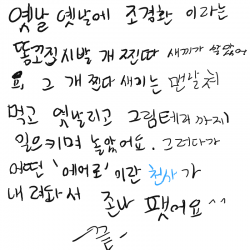 옛날 옛날에 조경환 이라는
똥꼬진 시발 개 찐따 새끼가 살았어
요, 그 개 찐다 새기는 맨날
먹고 옛날리고 그림테러까지
일으키며 놀았어요. 그러다가
어떤 '에어로'이란 천사가
내려와서 존나 팻어요^^
-끝-